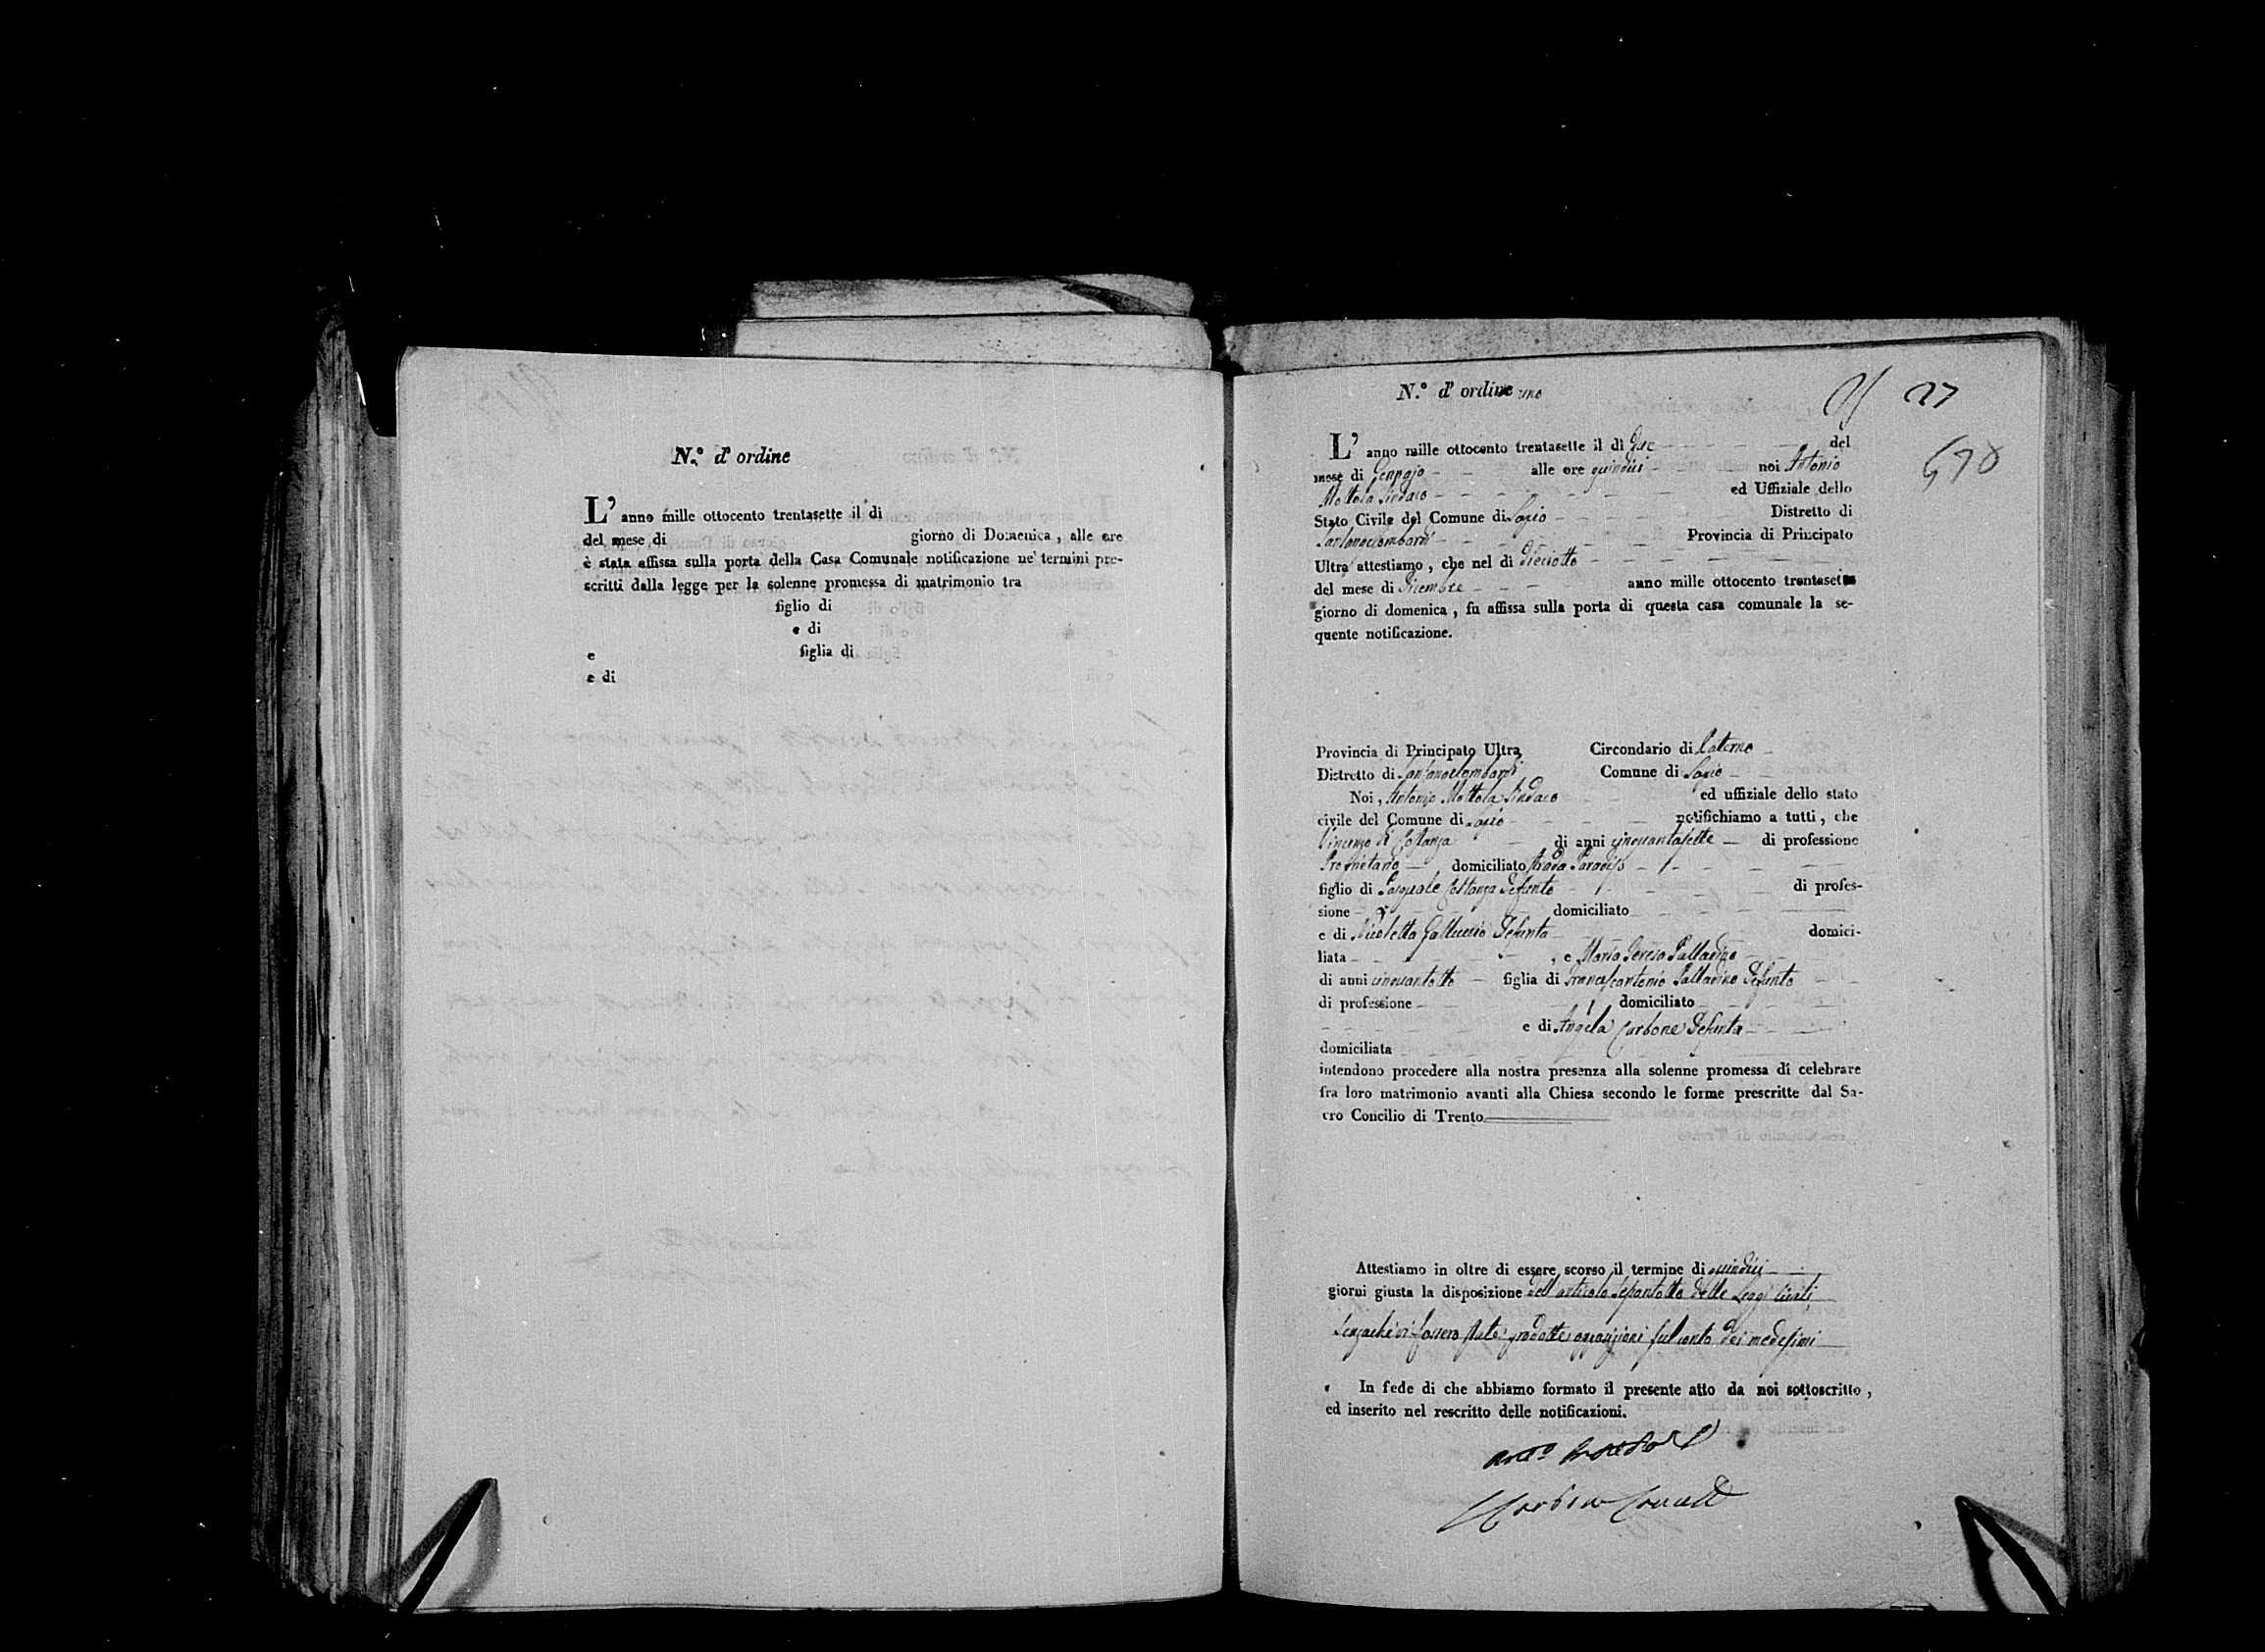 N.º d' ordine
L' anno mille ottocento trentasette il dì
del mese di giorno di Domenica , alle ore
è stata affissa sulla porta della Casa Comunale notificazione ne' termini pre-
scritti dalla legge per la solenne promessa di matrimonio tra
figlio di
e di
e figlia di
e di
N.º d' ordine uno
27
L' anno mille ottocento trentasette il dì due del
mese di Gennajo alle ore quindici noi Antonio
Mottola Sindaco ed Uffiziale dello
Stato Civile del Comune di Distretto di
Santangelombardi Provincia di Principato
Ultra attestiamo , che nel dì dieciotto
del mese di Dicembre anno mille ottocento trentasette
giorno di domenica , fu affissa sulla porta di questa casa comunale la se-
quente notificazione.
Provincia di Principato Ultra Circondario di Paterno
Distretto di Santangelombardi Comune di
Noi , Antonio Mottola Sindaco ed uffiziale dello stato
civile del Comune di notifichiamo a tutti , che
Vincenzo di Costanza di anni cinquantasette di professione
Proprietario domiciliato Strada Paradiso
figlio di Pasquale Costanza Defunto di profes-
sione domiciliato
e di Nicoletta Galluccio Defunta domici-
liata , e Maria Teresa Palladino
di anni cinquantotto figlia di Francescantonio Palladino Defunto
di professione domiciliato
e di Angela Carbone Defunta
domiciliata
intendono procedere alla nostra presenza alla solenne promessa di celebrare
fra loro matrimonio avanti alla Chiesa secondo le forme prescritte dal Sa-
cro Concilio di Trento
Attestiamo in oltre di essere scorso il termine di quindici
giorni giusta la disposizione dell'articolo Sessantotto delle Leggi Civili
senzacché vi fossero state prodotte opposizioni sul conto dei medesimi
In fede di che abbiamo formato il presente atto da noi sottoscritto ,
ed inserito nel rescritto delle notificazioni.